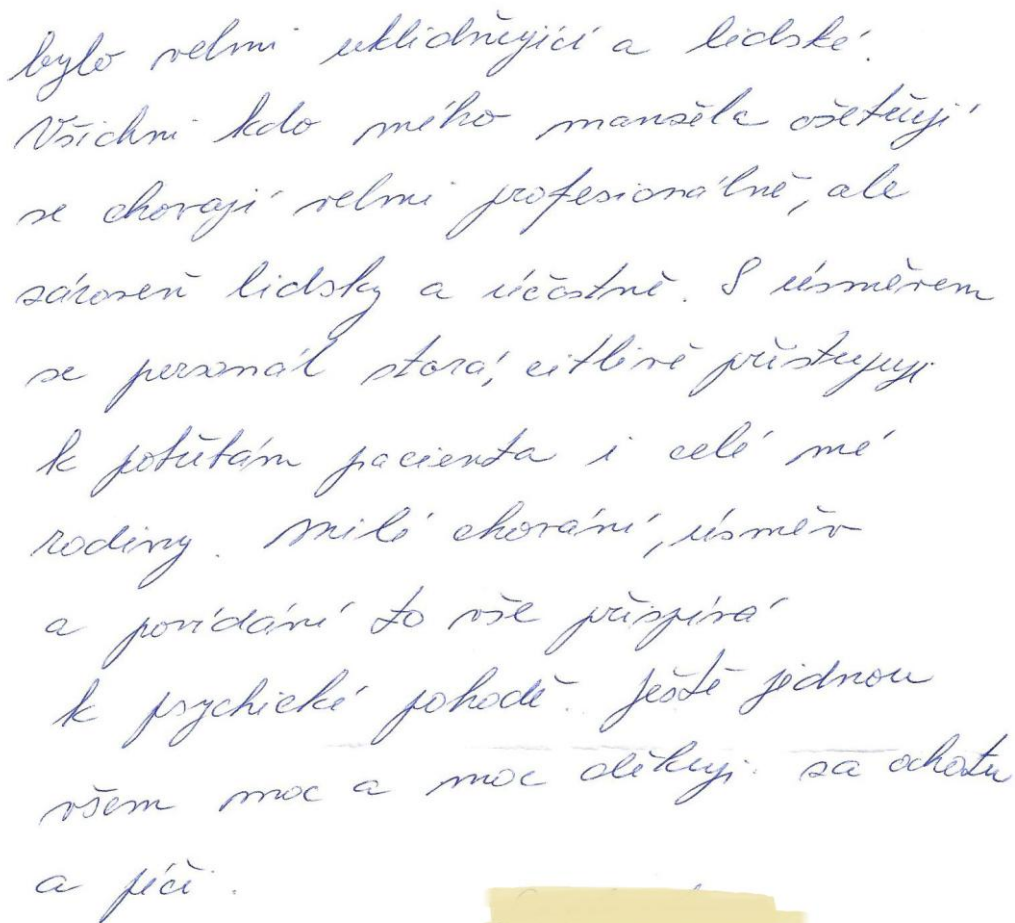 bylo velmi uklidňující a lidské.
Všichni kdo mého manžela ošetřují
se chovají velmi profesionálně, ale
zároveň lidsky a účastně. S úsměvem
se personál stará, citlivě přistupuje
k potřebám pacienta i celé mé
rodiny. Milé chování, úsměv
a povídání to vše přispívá
k psychické pohodě. Ještě jednou
všem moc a moc děkuji za ochotu
a péči.